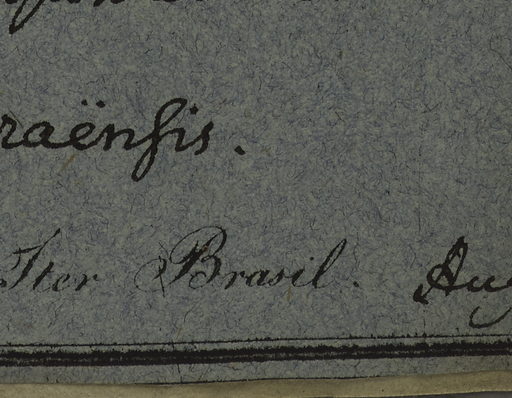 raënsis.
Iter Brasil. Aug